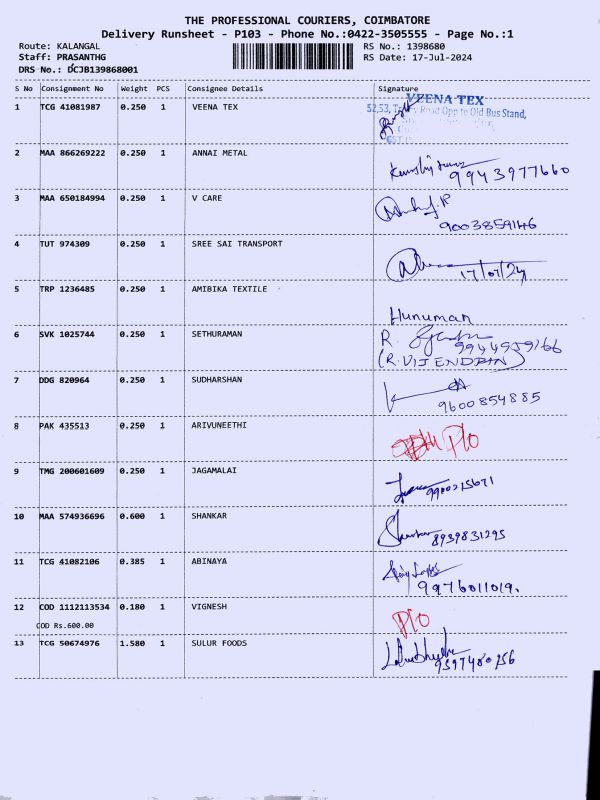 THE PROFESSIONAL COURIERS, COIMBATORE
Delivery Runsheet - P103 - Phone No.:0422-3505555 - Page No.:1
Route: KALANGAL RS No.: 1398680
Staff: PRASANTHG RS Date: 17-Jul-2024
DRS No.: DCJB139868001
S No Consignment No Weight PCS Consignee Details Signature
1 TCG 41081987 0.250 1 VEENA TEX VEENA TEX
Opp to Old Bus Stand,
2 MAA 866269222 0.250 1 ANNAI METAL
9943977660
3 MAA 650184994 0.250 1 V CARE
9003859146
4 TUT 974309 0.250 1 SREE SAI TRANSPORT
17/07/24
5 TRP 1236485 0.250 1 AMIBIKA TEXTILE
Hunuman
6 SVK 1025744 0.250 1 SETHURAMAN R.
9944959166
(R.VIJENDRAN)
7 DDG 820964 0.250 1 SUDHARSHAN
9600854885
8 PAK 435513 0.250 1 ARIVUNEETHI
P/O
9 TMG 200601609 0.250 1 JAGAMALAI
10 MAA 574936696 0.600 1 SHANKAR
8939831295
11 TCG 41082106 0.385 1 ABINAYA
9976011019.
12 COD 1112113534 0.180 1 VIGNESH P/O
COD Rs.600.00
13 TCG 50674976 1.580 1 SULUR FOODS